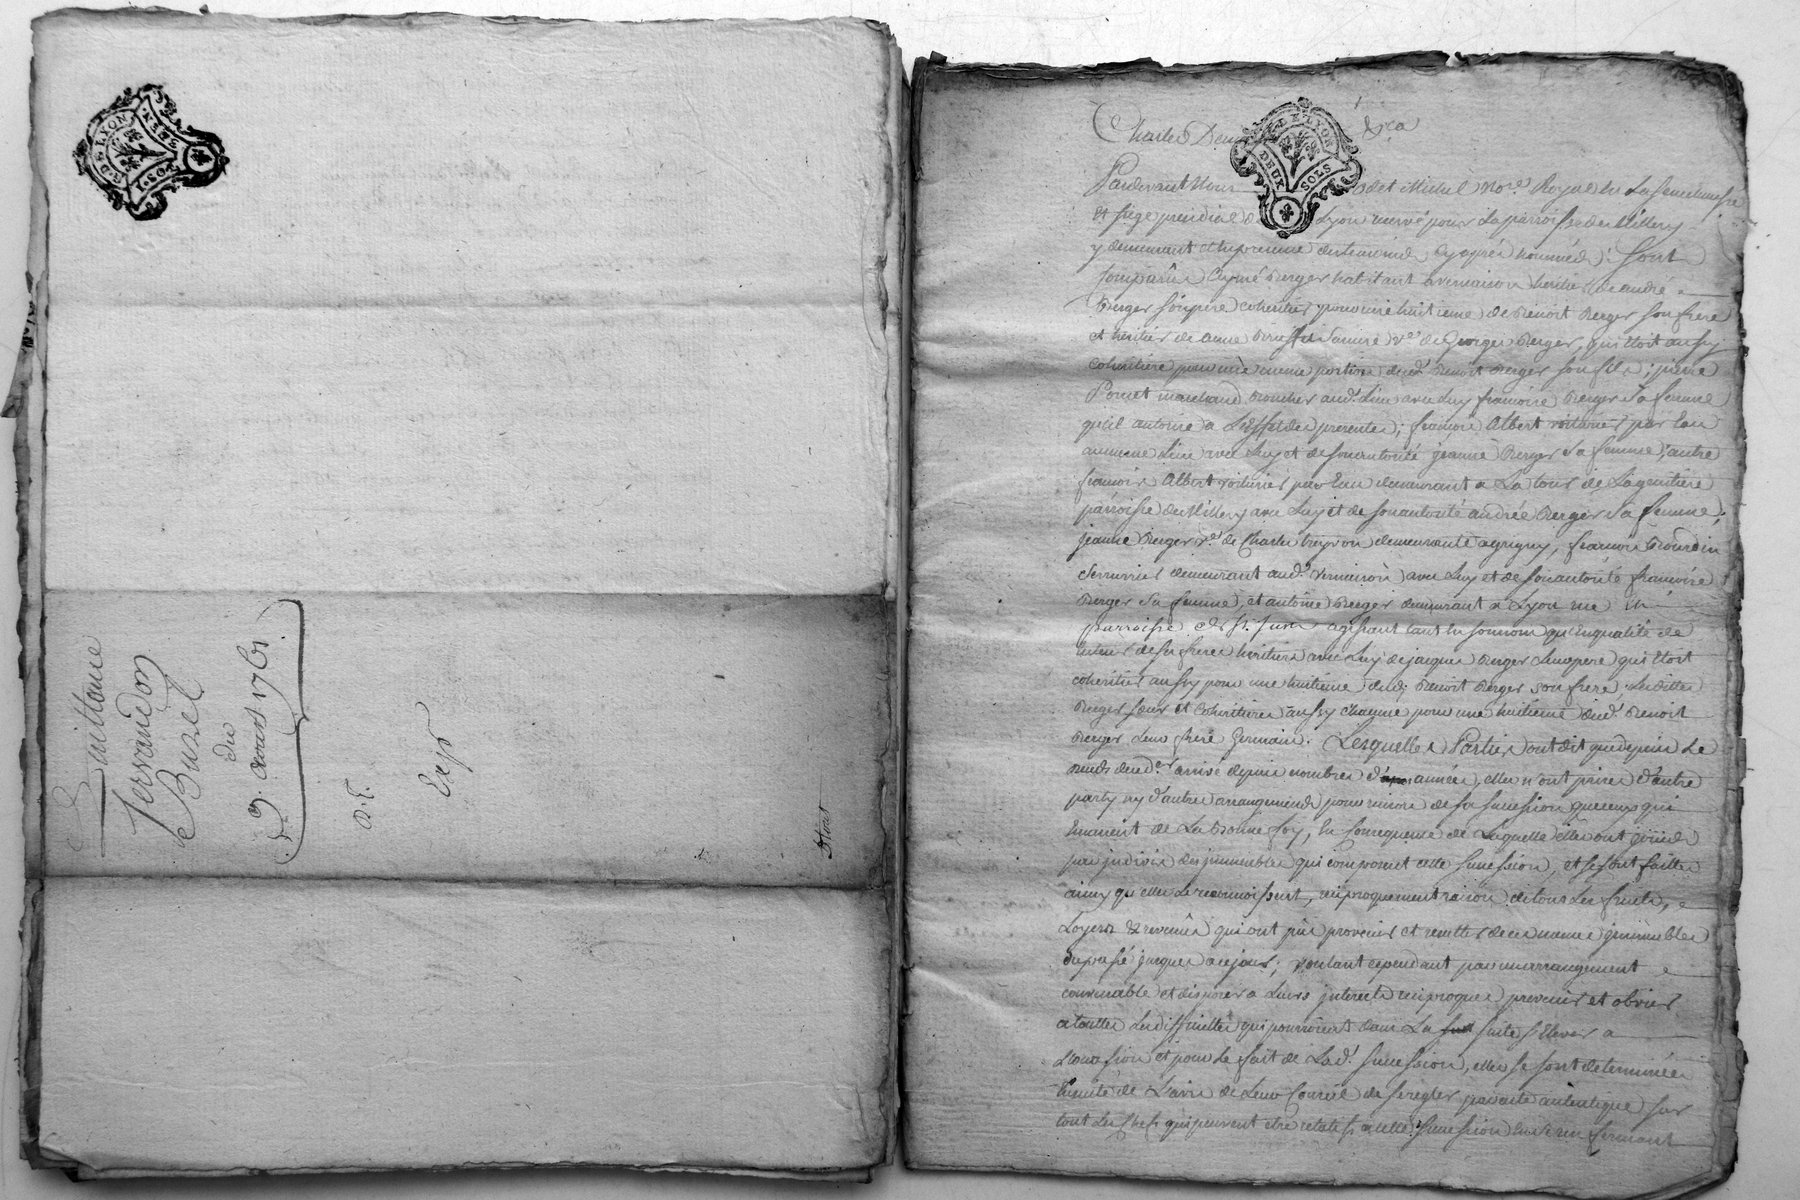 G. DE LYON
DEUX SOLS
Quittance
Ferrandon
Buzel
du
9. avril 1761
Exp.
G. DE LYON
DEUX SOLS
Charles &ca
Pardevant Nous Michel Nore. Royal en La senechaussée
et siege presidial de Lyon reservé pour La parroisse de Millery
y demeurant et en presence des temoins cy après nommés : sont
comparûs Berger habitant a vernaison heritier de andré
Berger son pere coheritier pour une huitieme de Benoit Berger son frere
et heritier de anne sa mere ve. de George Berger, qui etoit aussy
coheritiere pour une meme portion dud. Benoit Berger son fils ; pierre
Poncet marchand Boucher aud. Lieu avec Luy francoise Berger sa femme
qu'il autorise a L'effet des presentes ; françois Albert voiturier par Eau
au meme Lieu avec Luy et de son autorité jeanne Berger sa femme ; autre
francois Albert voiturier par Eau demeurant a La tour de
parroisse de Millery avec Luy et de son autorité andrée Berger sa femme ;
jeanne Berger ve. de Charle demeurante a grigny, francois Bourdin
serrurier demeurant aud. vernaison avec Luy et de son autorité francoise
Berger sa femme, et antoine Berger demeurant a Lyon rue
parroisse de st. just agissant tant en son nom qu'en qualité de
tuteur de ses freres heritiers avec Luy de jacques Berger Leur pere qui etoit
coheritier aussy pour une huitieme dud. Benoit Berger son frere Lesdittes
Berger sœurs et coheritieres aussy chacune pour une huitieme dud. Benoit
Berger Leur frere Germain. Lesquelles Parties ont dit que depuis Le
decès arrivé depuis nombres d'années, elles n'ont prises d'autre
party ny d'autres arrangements pour raison de sa succession que ceux qui
emanent de La bonne foy, en consequence de Laquelle elles ont jouies
par indivis des jmmeubles qui composent cette succession, et se sont faittes
ainsy qu'elles Le reconnoissent, reciproquement raison de tous Les fruits,
Loyers & revenûs qui ont pû provenir et resulter de ces memes jmmeubles
du passé jusques a ce jour ; voulant cependant par un arrangement
convenable et a Leurs jnterets reciproques prevenir et obvier
a touttes Les difficultés qui pourroient dans La suite s'Elever a
L'occasion et pour Le fait de Lad. succession, elles se sont determinées
ensuite de L'avis de Leur Conseil de se regler par acte autentique sur
tout Les chefs qui peuvent etre relatifs a cette succession